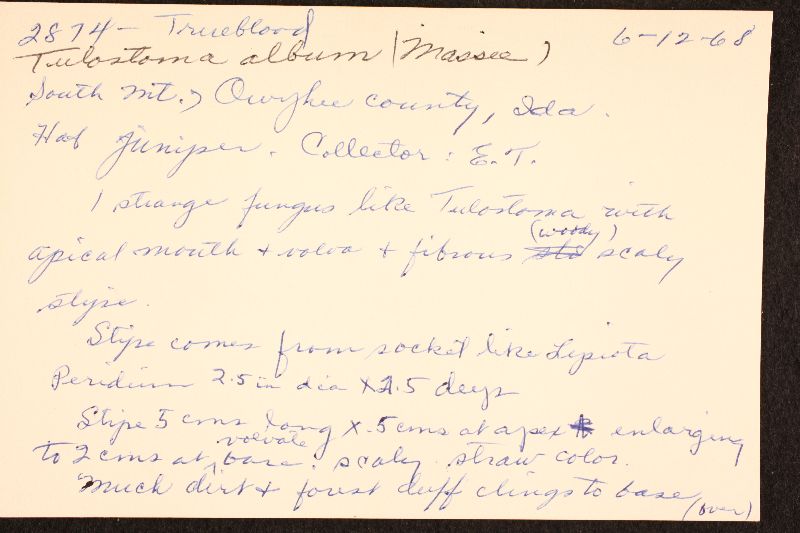 2874 - Trueblood 6-12-68
Tulostoma album (Massee)
South Mt., Owyhee county, Ida.
Hab juniper. Collector: E.T.
1 strange fungus like Tulostoma with
apical mouth + volva + fibrous (woody) scaly
stipe.
Stipe comes from socket like Lepiota
Peridium 2.5 in dia X 1.5 deep
Stipe 5 cms long X .5 cms at apex enlarging
to 2 cms at volvate base. scaly. straw color.
Much dirt + forest duff clings to base
(over)